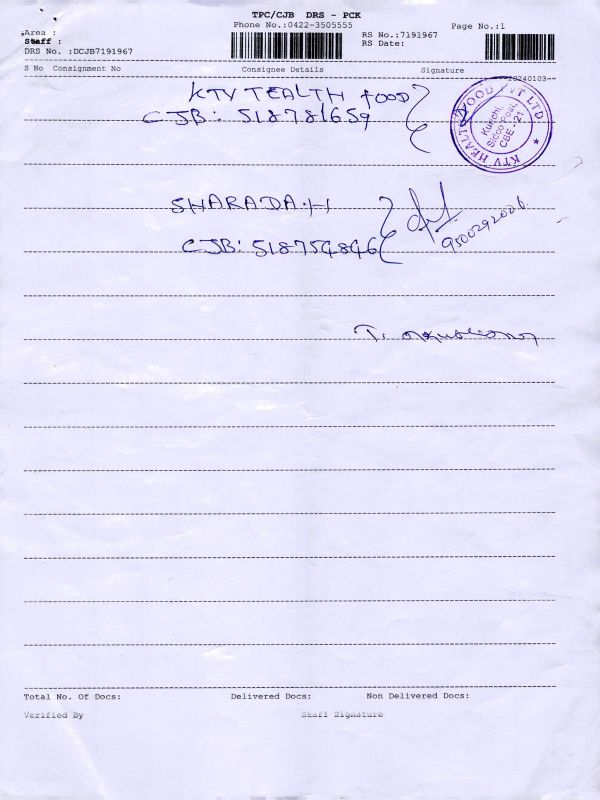 TPC/CJB DRS - PCK
Phone No.:0422-3505555
Page No.:1
Area :
Staff :
DRS No. :DCJB7191967
RS No.:7191967
RS Date:
S No Consignment No Consignee Details Signature
20240103
KTV TEALTH FOOD
CJB: 518781659
KTV HEALTH FOOD PVT LTD
Kurichi,
Sidco Post,
CBE - 21
SHARADA.H
CJB: 518754846
9500292006
T.
Total No. Of Docs: Delivered Docs: Non Delivered Docs:
Verified By Staff Signature